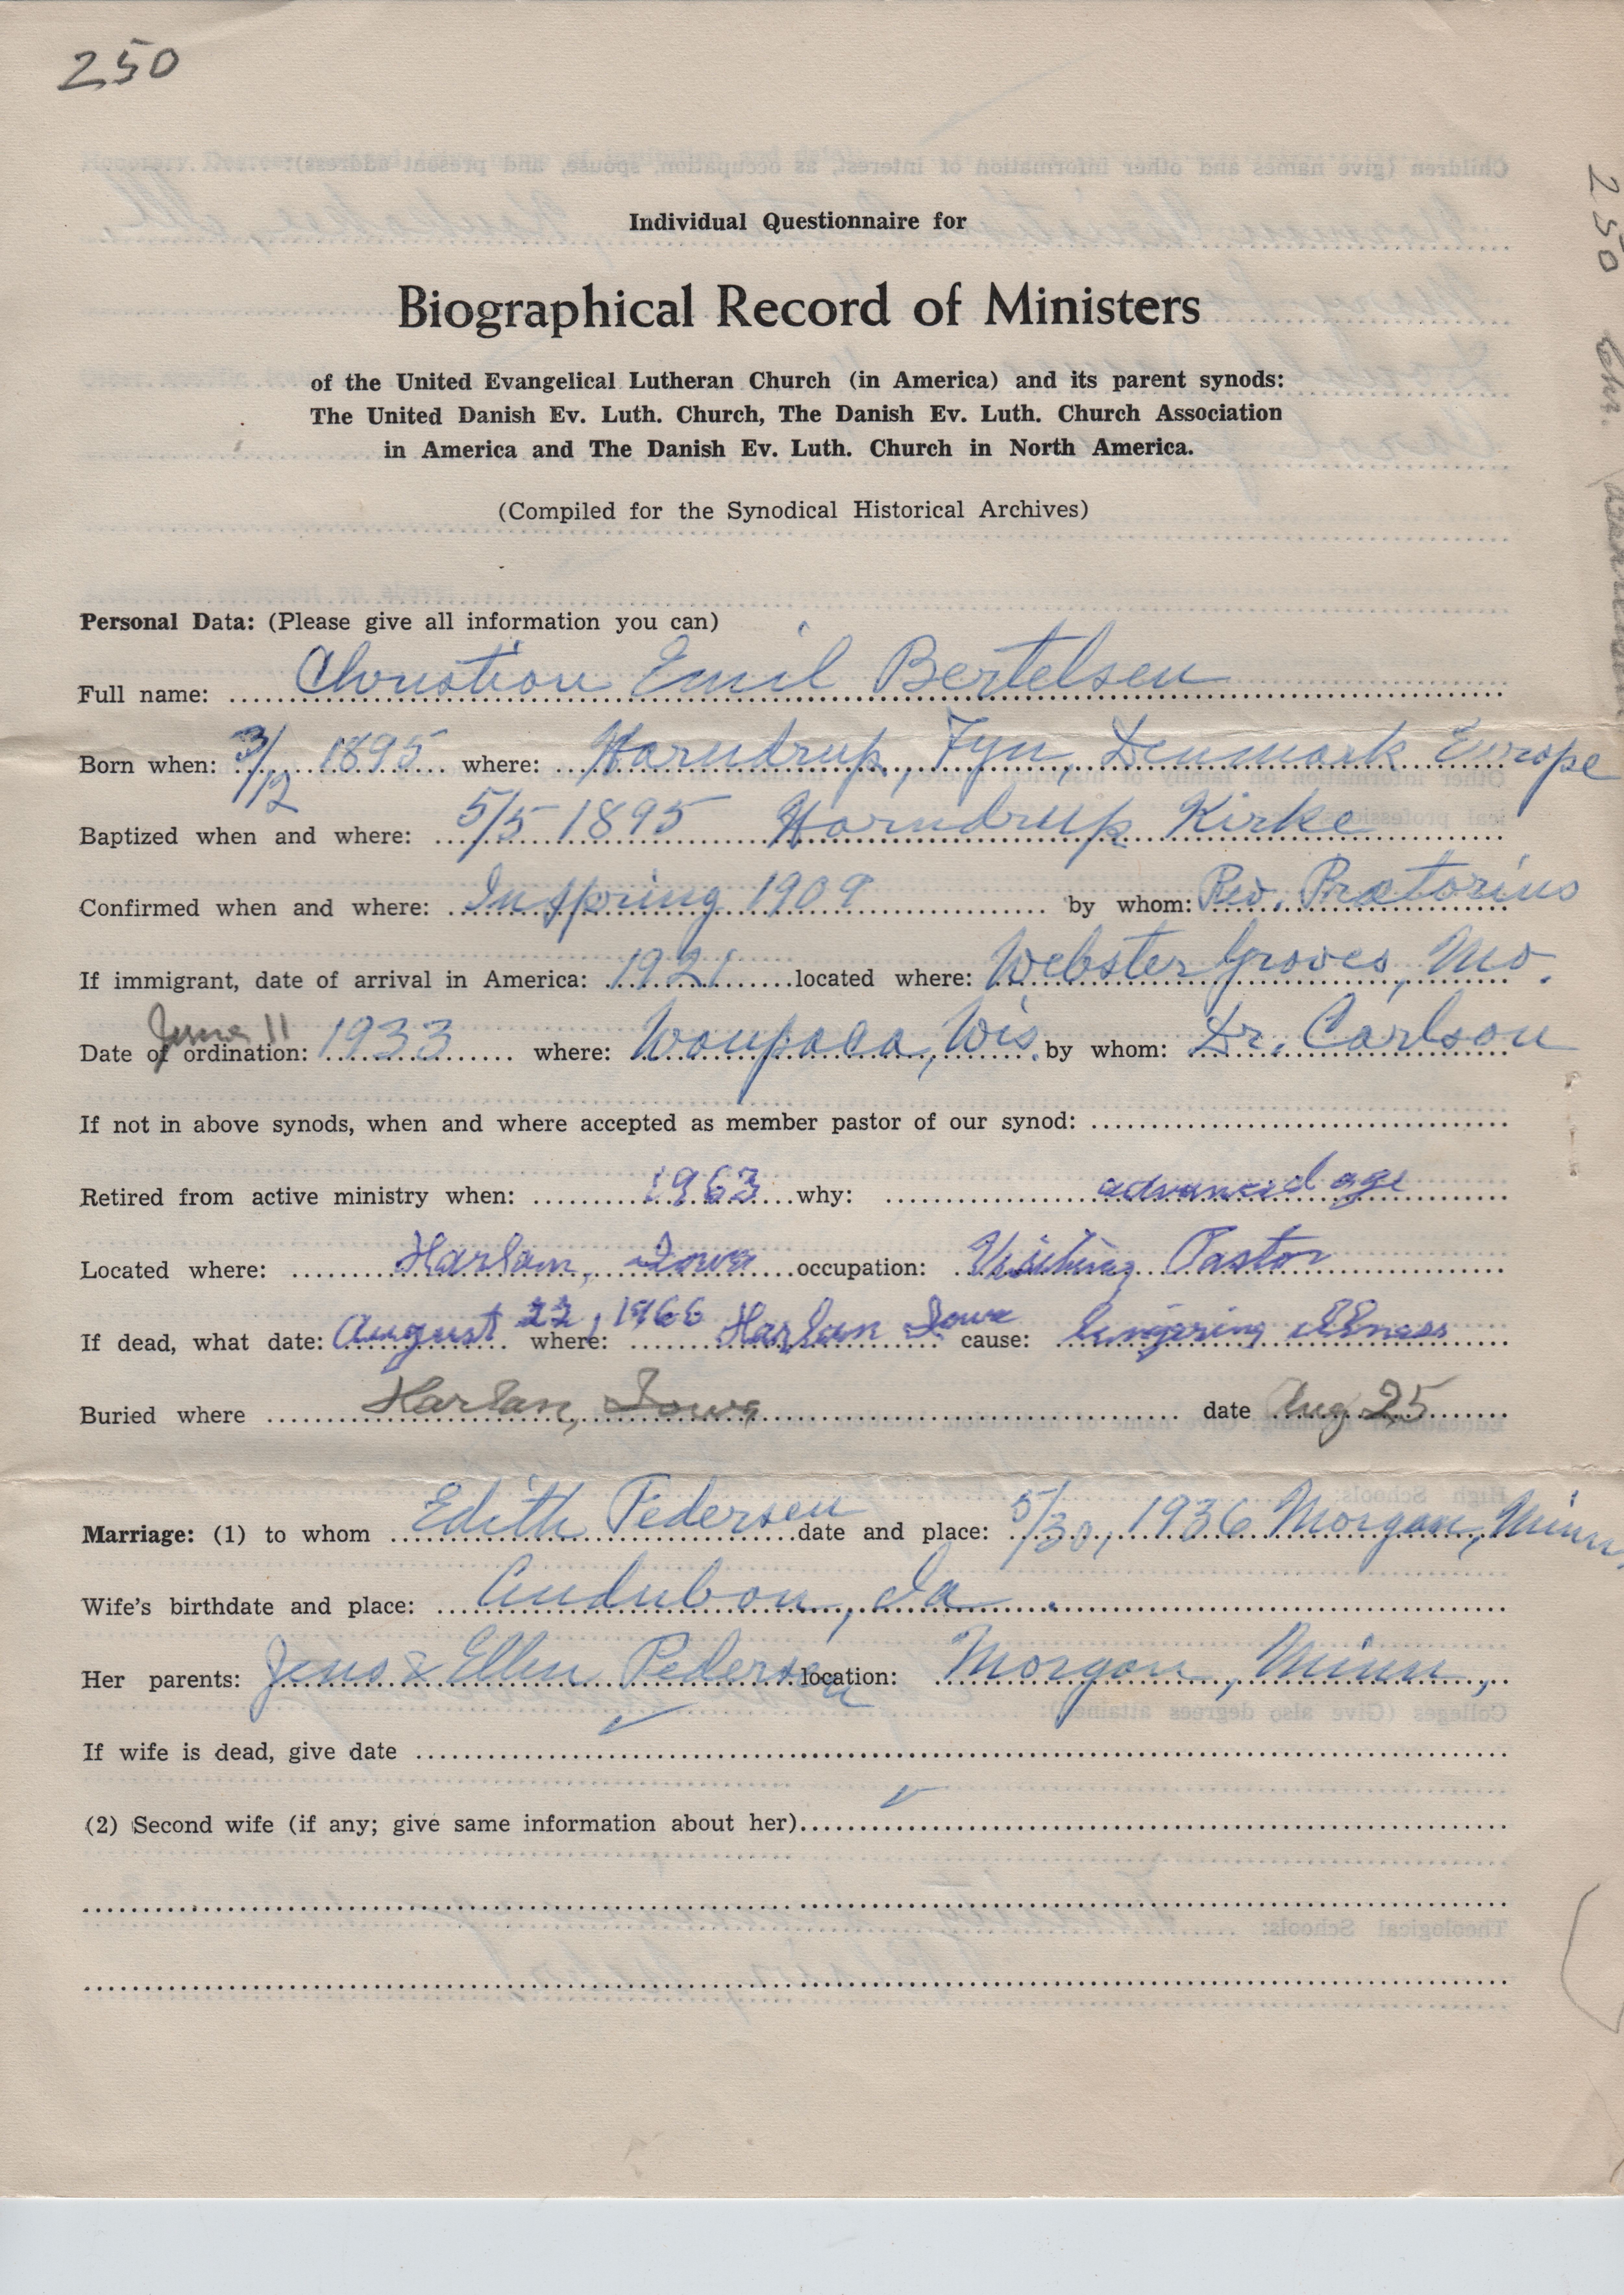 250
250 Chr. Bertelsen
Individual Questionnaire for
Biographical Record of Ministers
of the United Evangelical Lutheran Church (in America) and its parent synods:
The United Danish Ev. Luth. Church, The Danish Ev. Luth. Church Association
in America and The Danish Ev. Luth. Church in North America.
(Compiled for the Synodical Historical Archives)
Personal Data: (Please give all information you can)
Full name: Christian Emil Bertelsen
Born when: 3/12 1895 where: Horndrup, Fyn, Denmark Europe
Baptized when and where: 5/5 1895 Horndrup Kirke
Confirmed when and where: In spring 1909 by whom: Rev. Prætorius
If immigrant, date of arrival in America: 1921 located where: Webster Groves, Mo.
Date of ordination: June 11 1933 where: Waupaca, Wis. by whom: Dr. Carlson
If not in above synods, when and where accepted as member pastor of our synod:
Retired from active ministry when: 1963 why: advanced age
Located where: Harlan, Iowa occupation: Visiting Pastor
If dead, what date: August 22, 1966 where: Harlan Iowa cause: lingering illness
Buried where Harlan, Iowa date Aug 25
Marriage: (1) to whom Edith Pedersen date and place: 5/30, 1936 Morgan, Minn.
Wife's birthdate and place: Audubon, Ia.
Her parents: Jens & Ellen Pedersen location: Morgan, Minn,
If wife is dead, give date
(2) Second wife (if any; give same information about her)